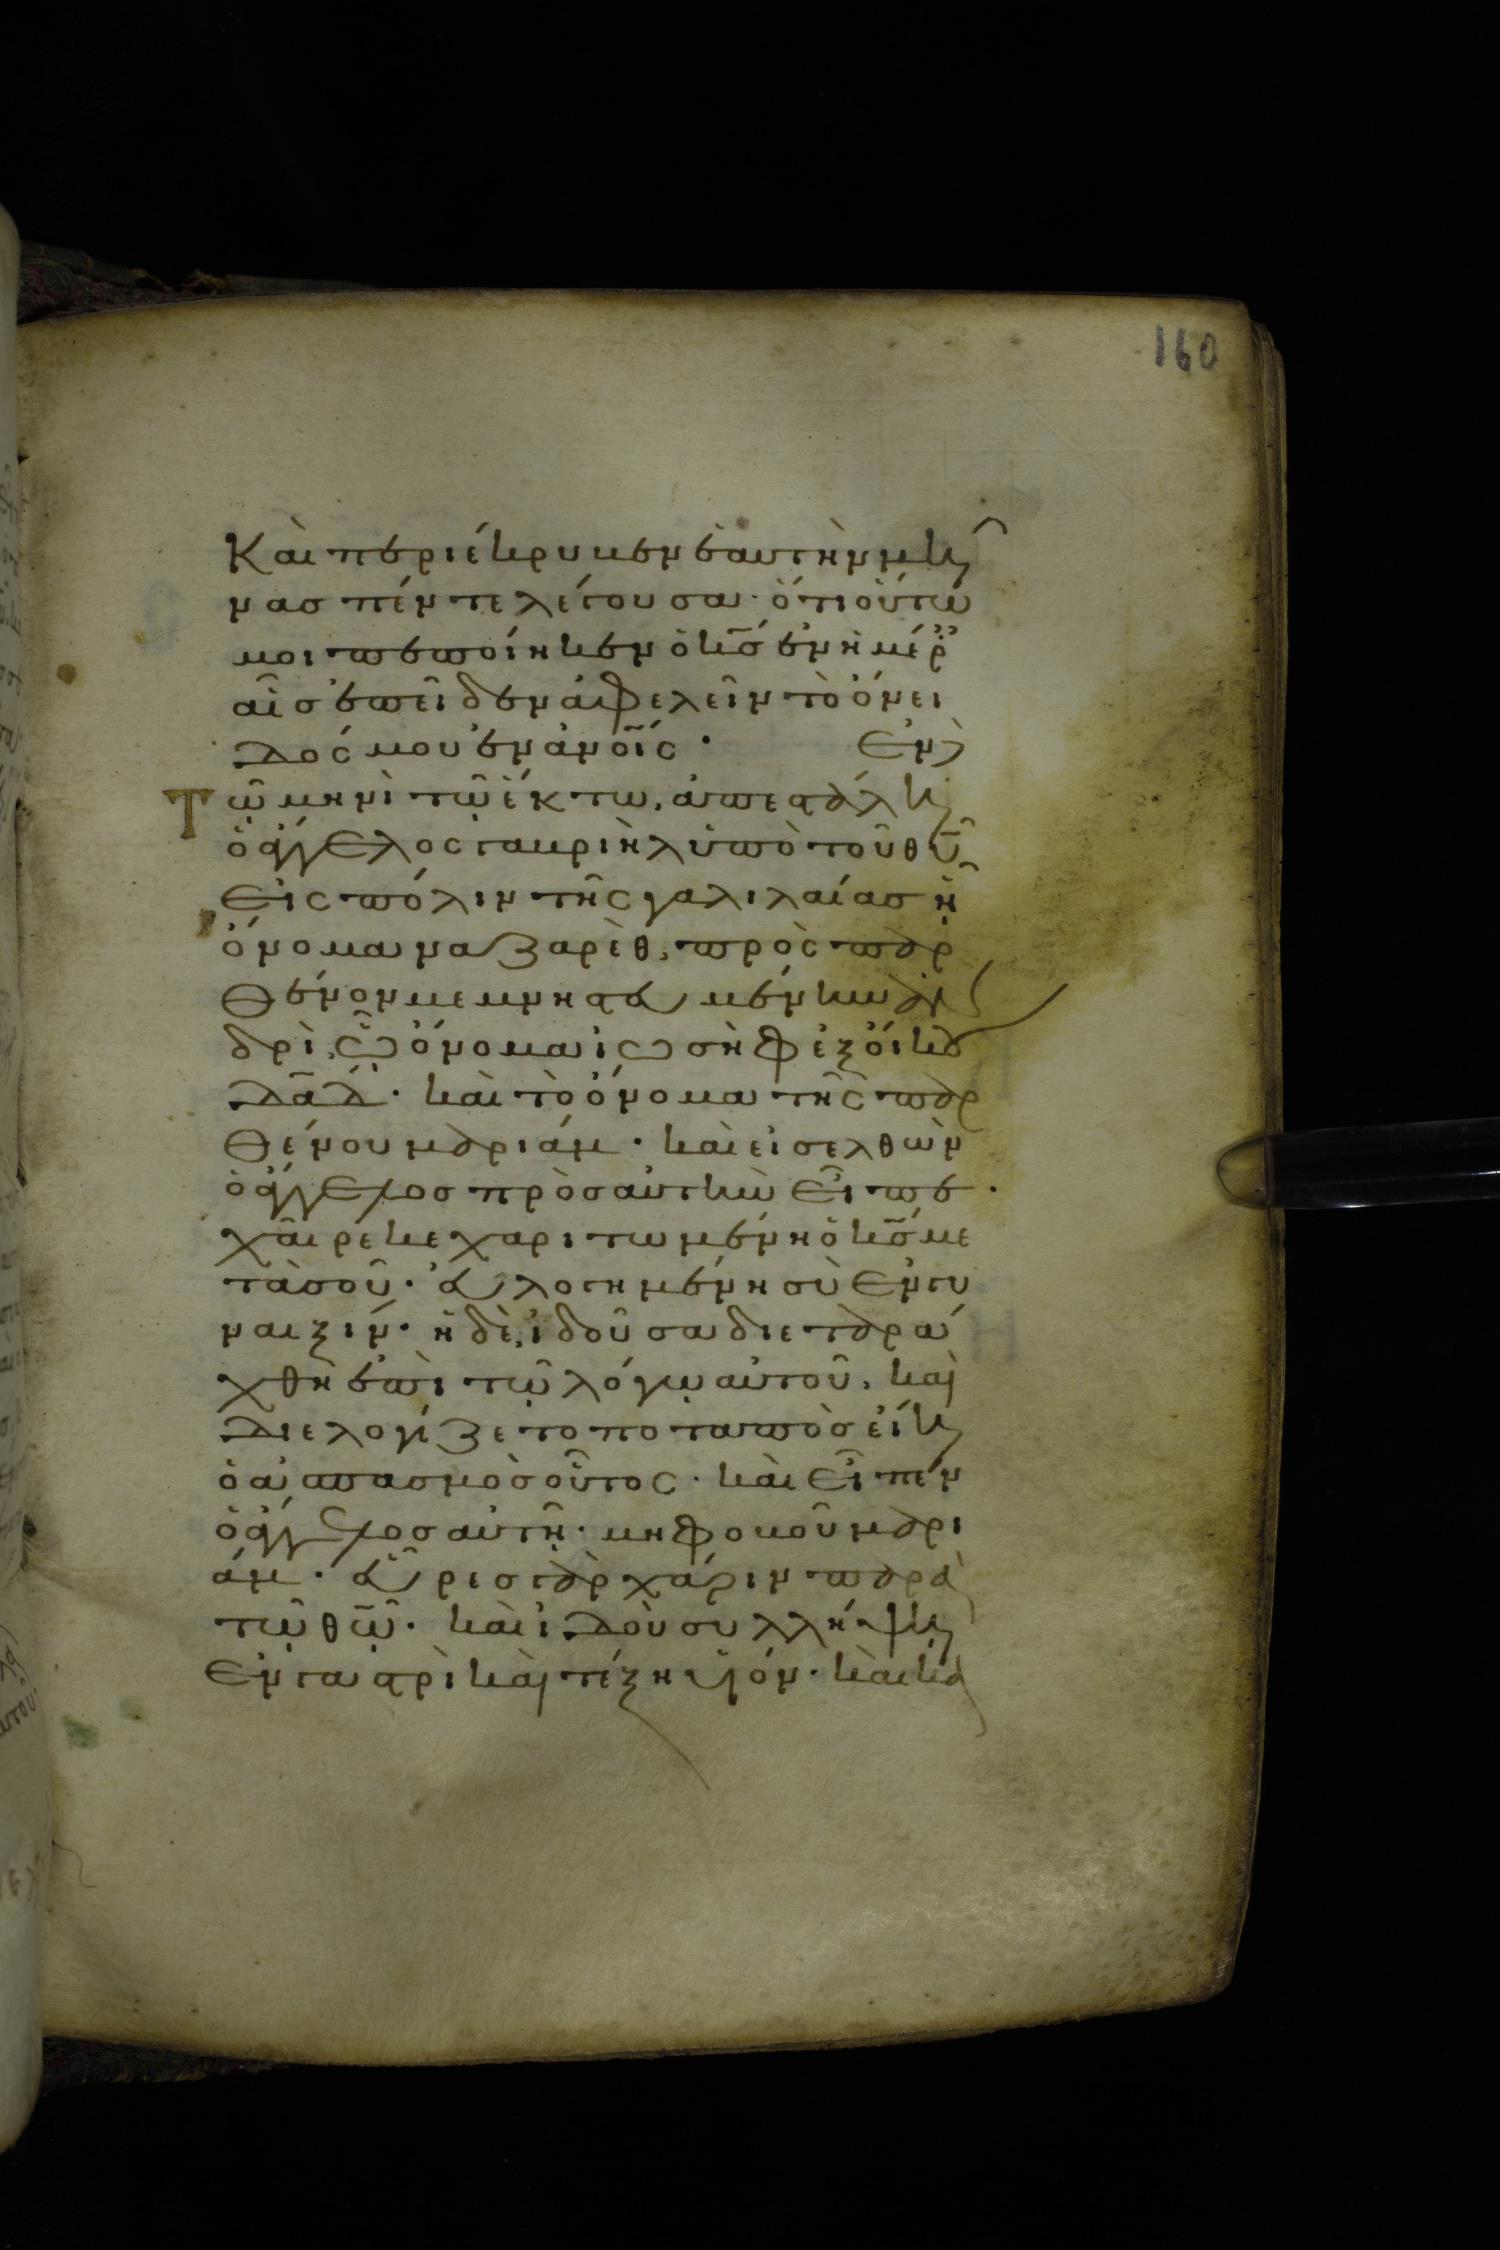 160
Καὶ περιέκρυβεν ἑαυτὴν μῆ
νας πέντε λέγουσα· ὅτι οὕτω
μοι πεποίηκεν ὁ κ̅ς̅ ἐν ἡμέρ
αις ἐπεῖδεν ἀφελεῖν τὸ ὄνει
δός μου ἐν ἀν̅ο̅ι̅ς̅· Ἐν δὲ
Τῷ μηνὶ τῷ ἕκτω, ἀπεστάλη
ὁ ἄγγελος γαβριὴλ ὑπὸ τοῦ θ̅υ̅
εἰς πόλιν τῆς γαλιλαίας ᾗ
ὄνομα ναζαρὲθ, πρὸς παρ
θένον μεμνηστευμένην ἀν
δρὶ, ᾧ ὄνομα ἰωσὴφ ἐξ οἴκου
δ̅α̅δ̅· καὶ τὸ ὄνομα τῆς παρ
θένου μαριάμ· καὶ εἰσελθὼν
ὁ ἄγγελος πρὸς αὐτὴν εἶπε·
χαῖρε κεχαριτωμένη ὁ κ̅ς̅ με
τὰ σοῦ· εὐλογημένη σὺ ἐν γυ
ναιξίν· ἡ δὲ, ἰδοῦσα διεταρά
χθη ἐπὶ τῷ λόγῳ αὐτοῦ, καὶ
διελογίζετο ποταπὸς εἴη
ὁ ἀσπασμὸς οὗτος· καὶ εἶπεν
ὁ ἄγγελος αὐτῇ· μὴ φοβοῦ μαρι
άμ· εὗρες γὰρ χάριν παρὰ
τῷ θ̅ω̅· καὶ ἰδοὺ συλλήψη
ἐν γαστρὶ καὶ τέξη υἱόν· καὶ κα